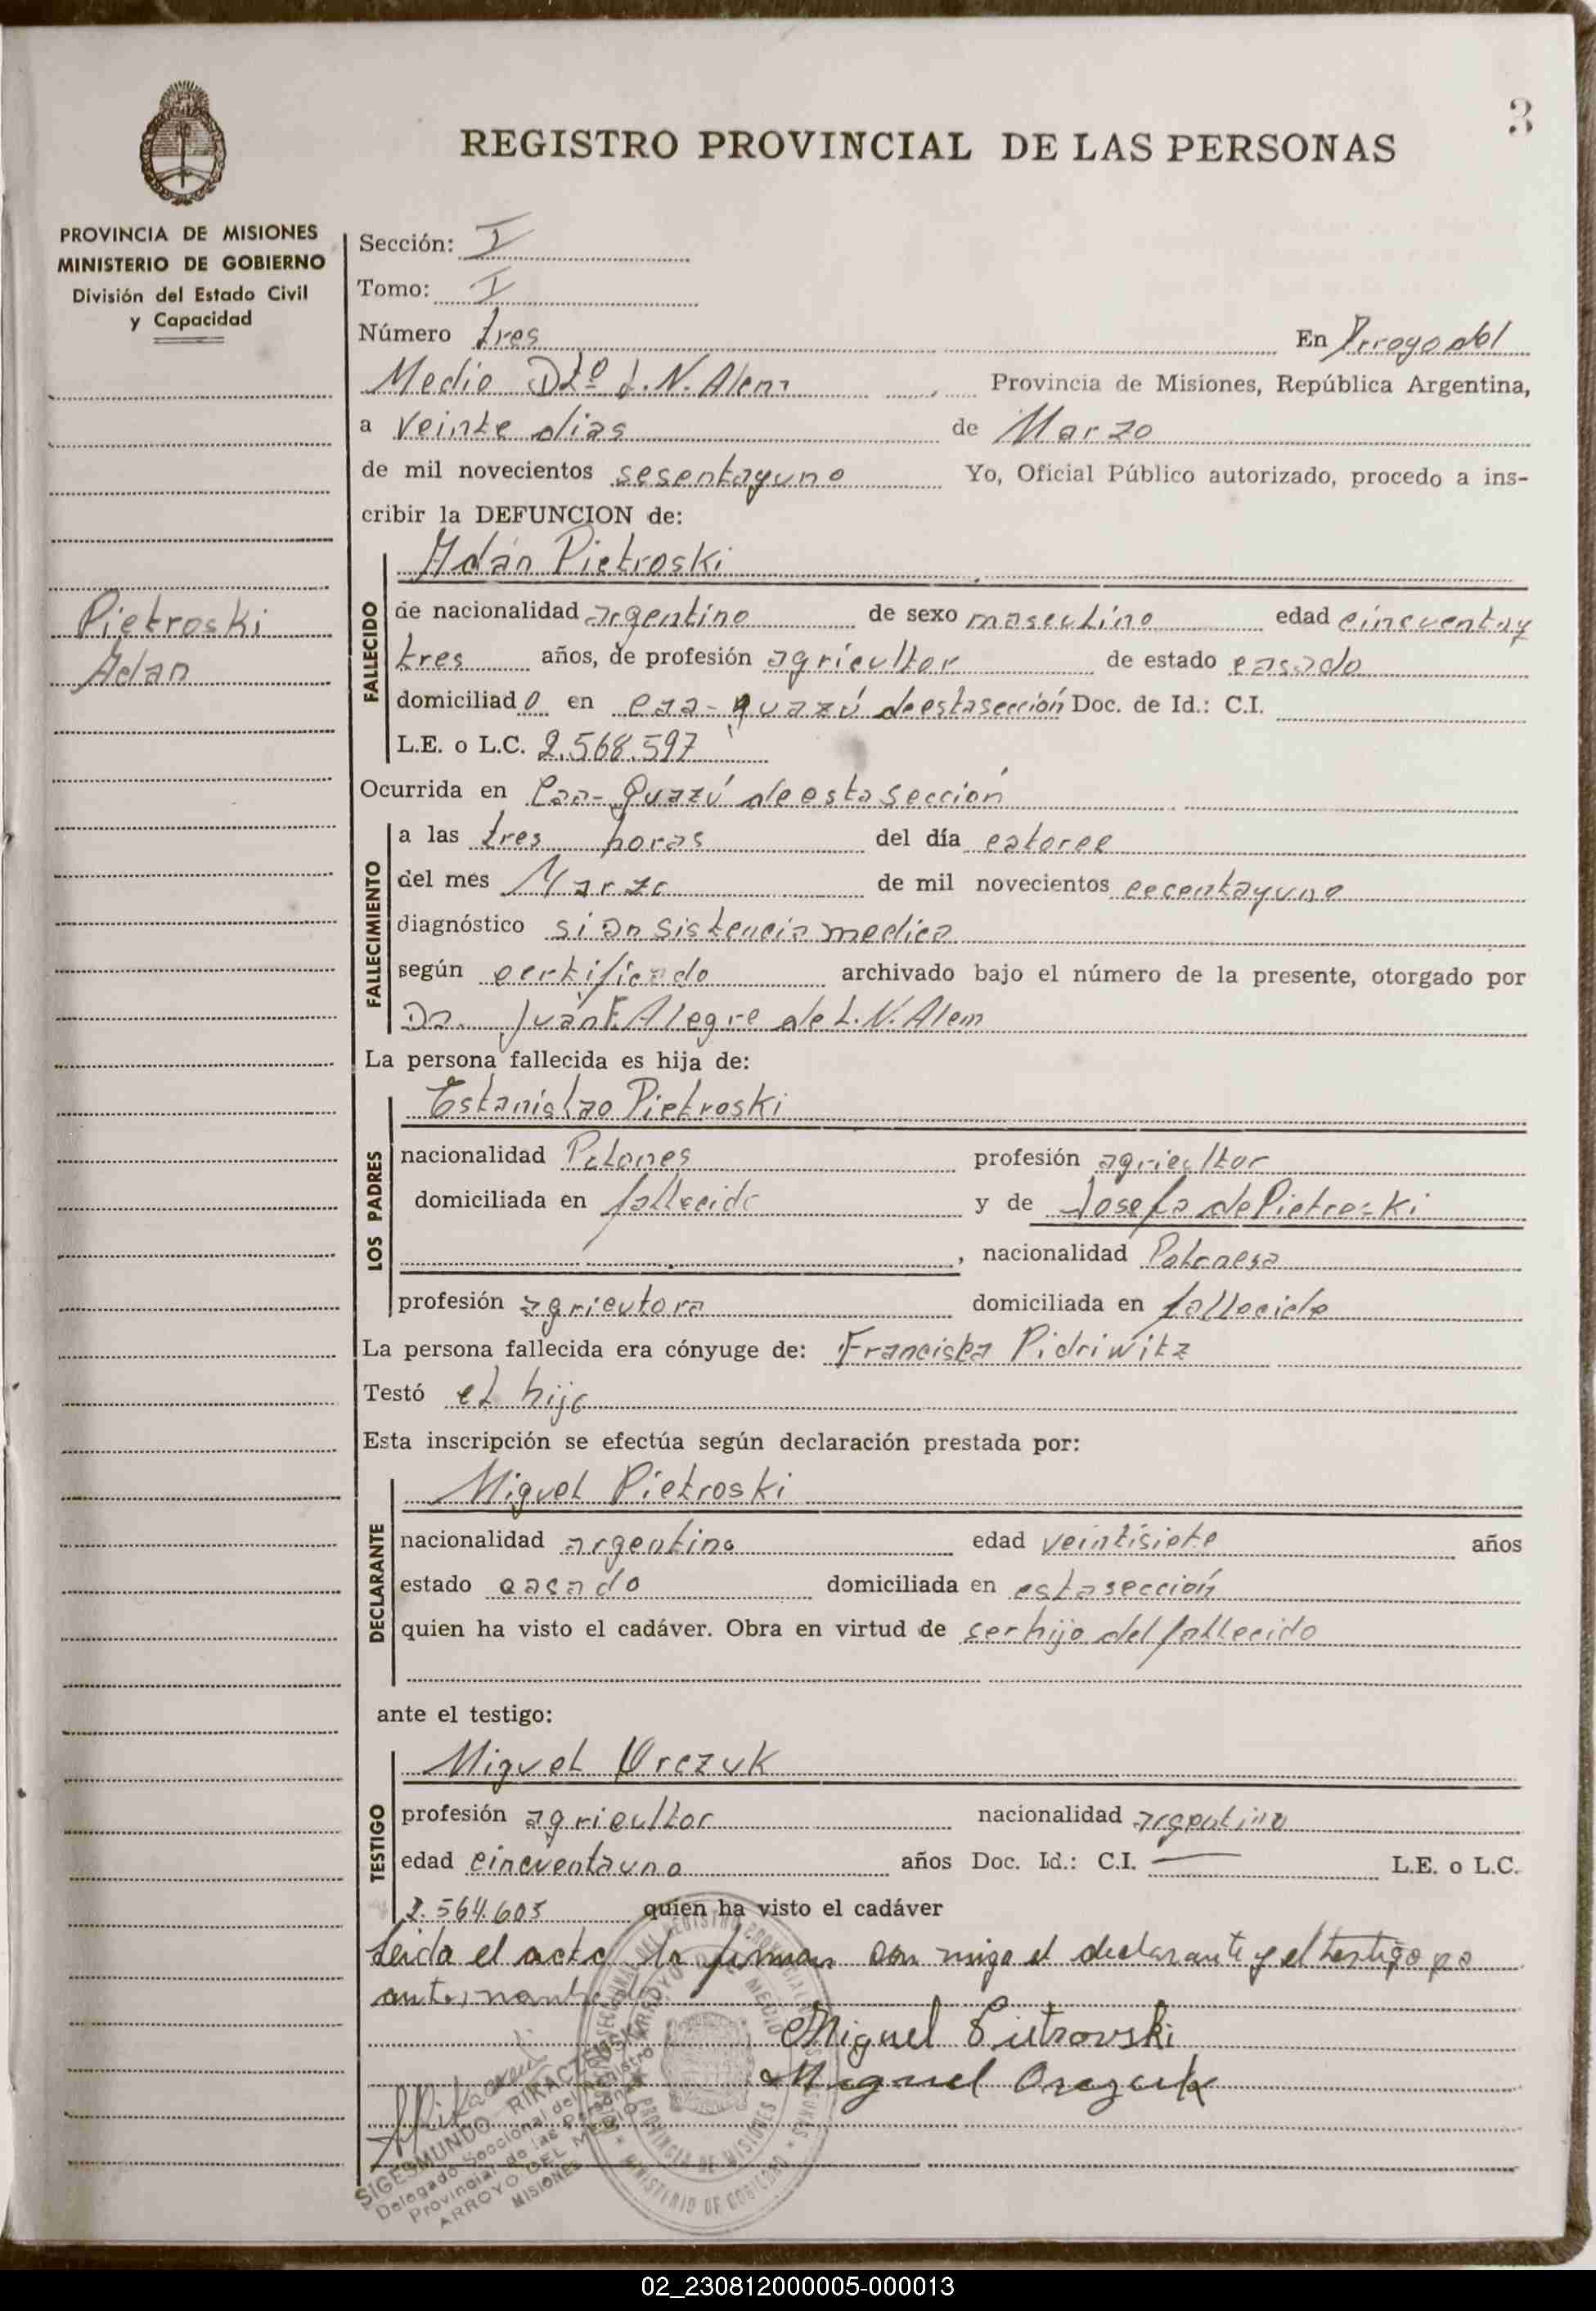 3
REGISTRO PROVINCIAL DE LAS PERSONAS
PROVINCIA DE MISIONES
MINISTERIO DE GOBIERNO
División del Estado Civil
y Capacidad
Pietroski
Adan
Sección: I
Tomo: I
Número tres En Arroyo del
Medio Dtº L.N. Alem Provincia de Misiones, República Argentina,
a veinte dias de Marzo
de mil novecientos sesentayuno Yo, Oficial Público autorizado, procedo a ins-
cribir la DEFUNCION de:
Adán Pietroski
FALLECIDO
de nacionalidad argentino de sexo masculino edad cincuentay
tres años, de profesión agricultor de estado casado
domiciliado en caa-guazú de esta sección Doc. de Id.: C.I.
L.E. o L.C. 2.568.597
Ocurrida en Caa-Guazú de esta sección
FALLECIMIENTO
a las tres horas del día catorce
del mes Marzo de mil novecientos cecentayuno
diagnóstico si ansistencia medica
según certificado archivado bajo el número de la presente, otorgado por
Dr. Juan F. Alegre de L.N. Alem
La persona fallecida es hija de:
Estanislao Pietroski
LOS PADRES
nacionalidad Polones profesión agricultor
domiciliada en fallecido y de Josefa de Pietroski
, nacionalidad Polonesa
profesión agricutora domiciliada en fallecida
La persona fallecida era cónyuge de: Franciska Pidriwitz
Testó el hijo
Esta inscripción se efectúa según declaración prestada por:
Miguel Pietroski
DECLARANTE
nacionalidad argentino edad veintisiete años
estado casado domiciliada en esta sección
quien ha visto el cadáver. Obra en virtud de ser hijo del fallecido
ante el testigo:
Miguel Orczuk
TESTIGO
profesión agricultor nacionalidad argentino
edad cincuentauno años Doc. Id.: C.I. — L.E. o L.C.
2.564.605 quien ha visto el cadáver
Leida el acta la firman con migo el declarante y el testigo
Miguel Pietrovski
Miguel Orczuk
SIGESMUNDO RIKACZEWSKI
Delegado Seccional del Registro
Provincial de las Personas
ARROYO DEL MEDIO
MISIONES
ARROYO DEL MEDIO
PROVINCIA DE MISIONES
MINISTERIO DE GOBIERNO
02_230812000005-000013